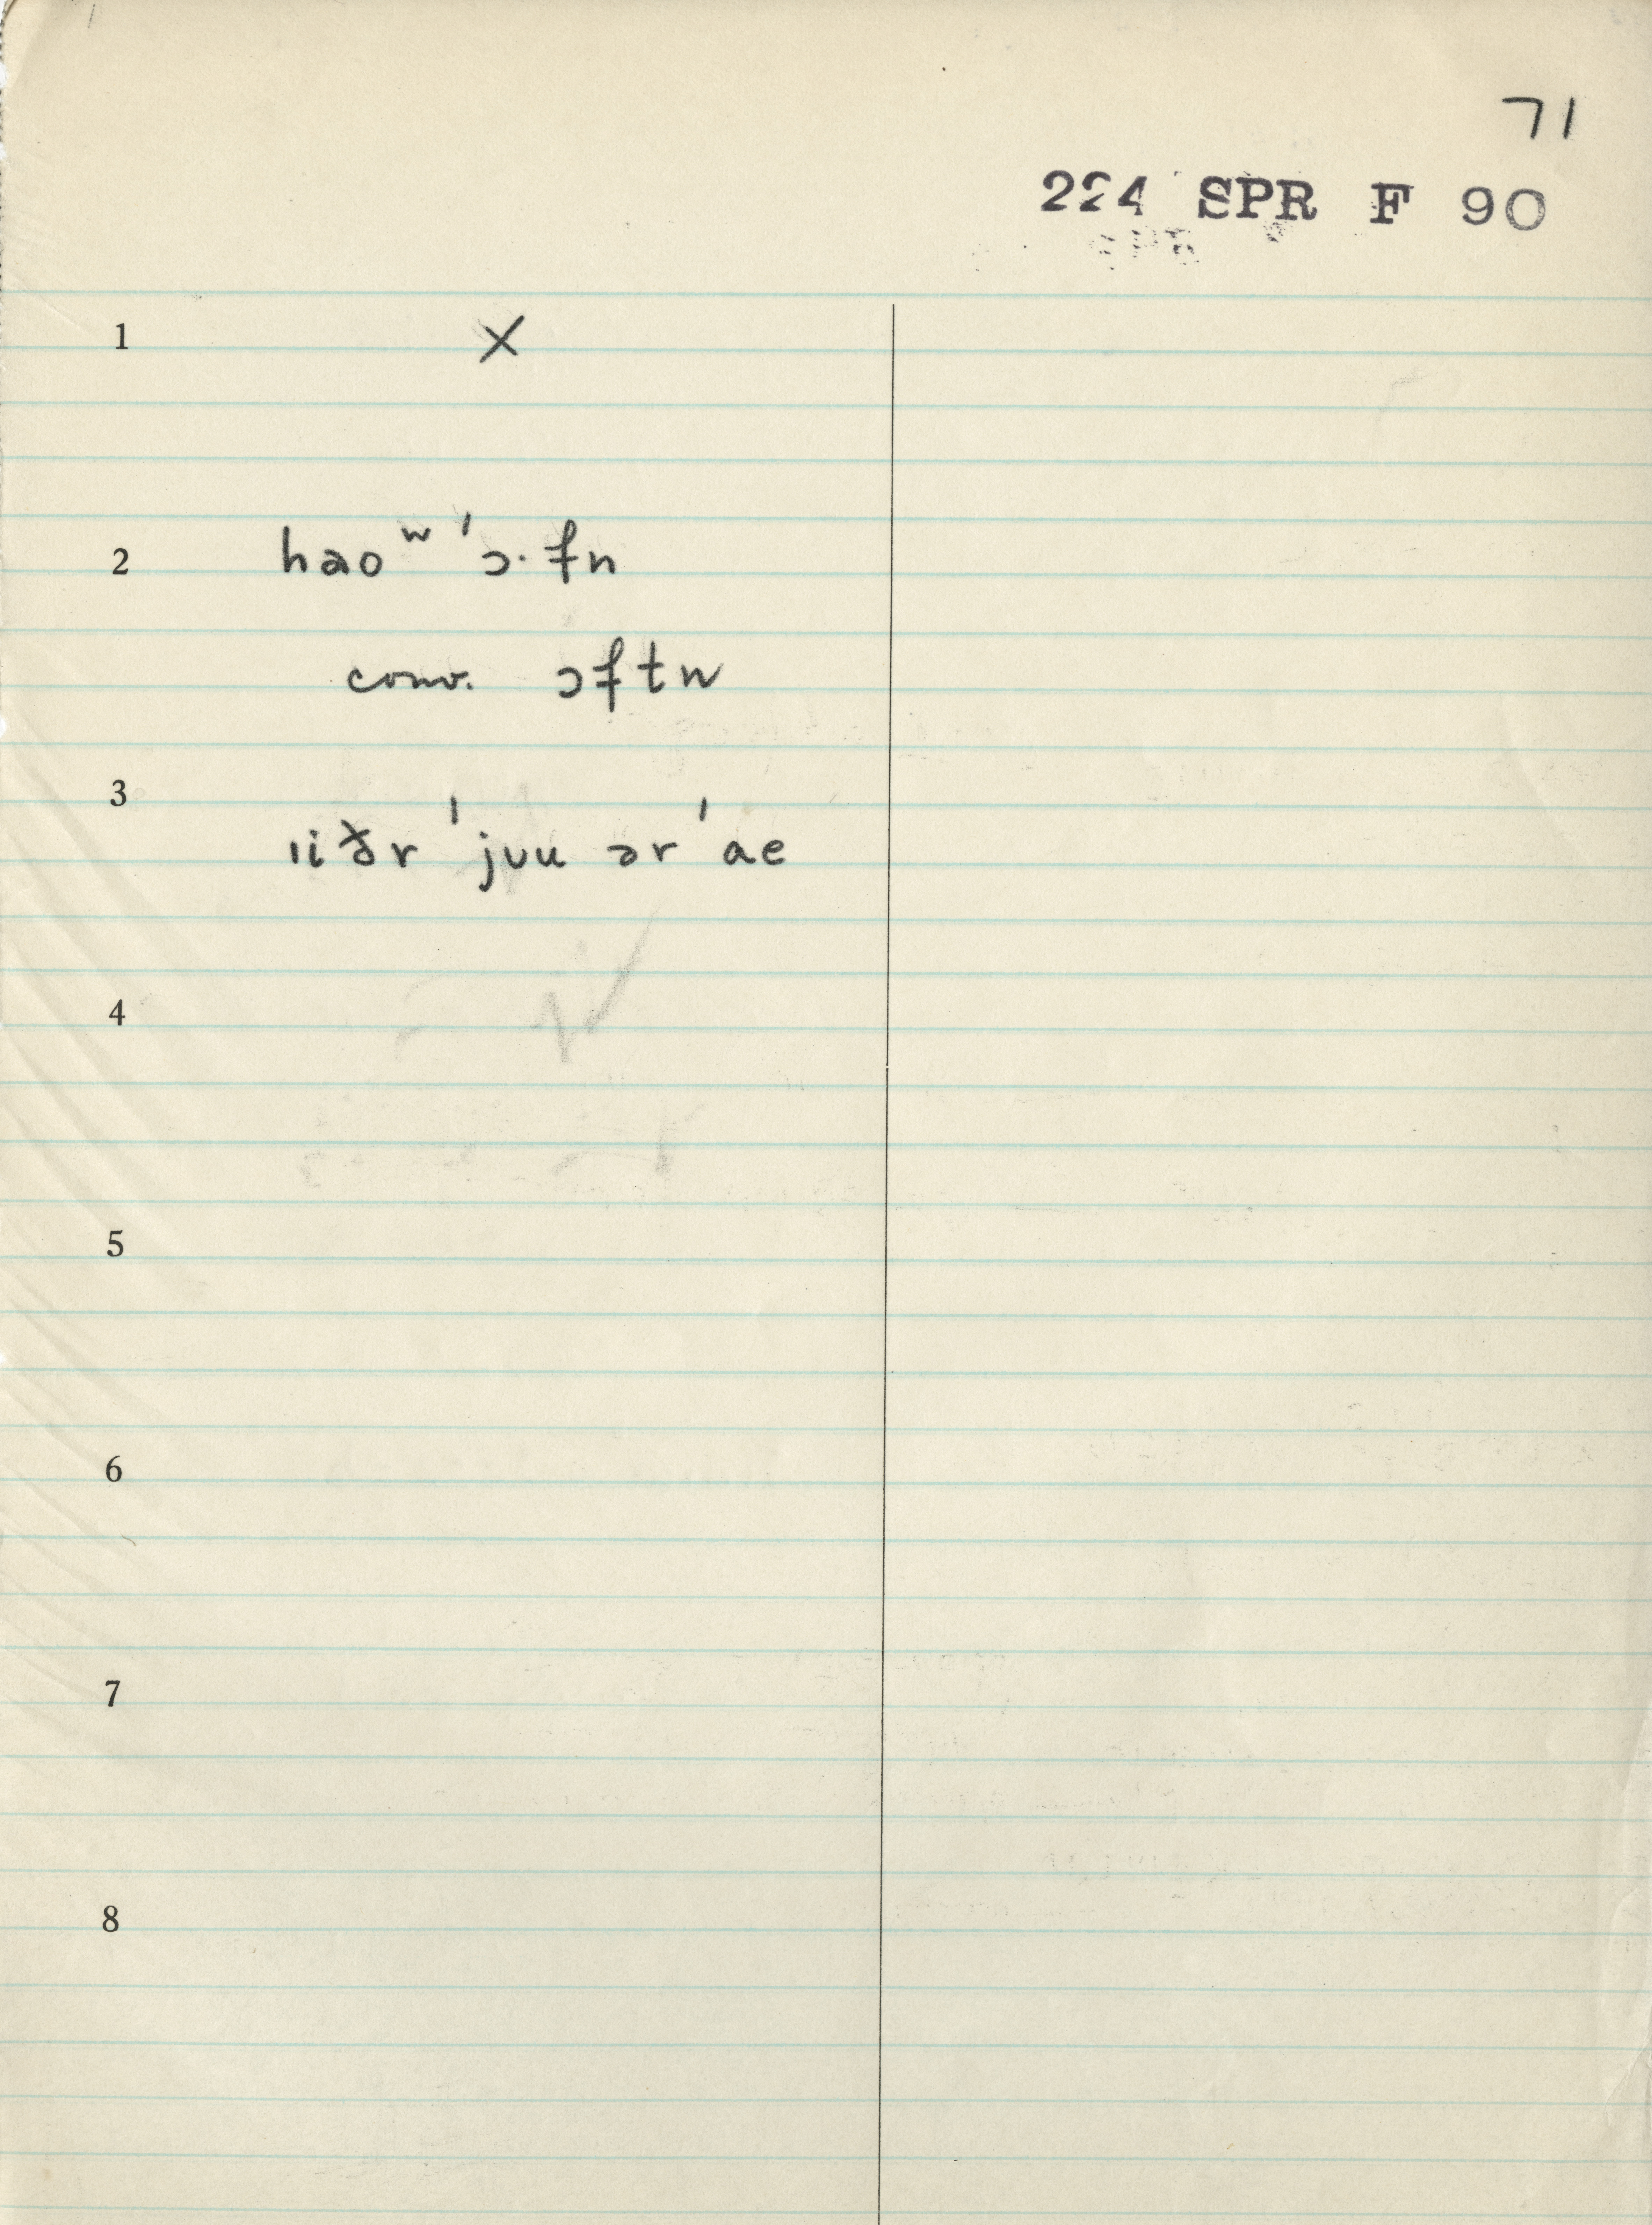 71
224 SPR F 90
1 X
2 haoʷ ˈɔ·fn
conv. ɔftn
3 ɪiðr ˈjʊu ər ˈae
4
5
6
7
8